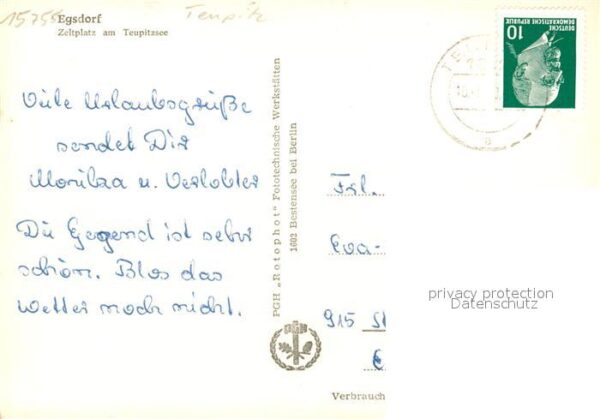 15755
Teupitz
Egsdorf
Zeltplatz am Teupitzsee
Viele Urlaubsgrüße
sendet Dir
u. Verlobter
Die Gegend ist sehr
schön. Blos das
Wetter noch nicht.
PGH „Rotophot“ Fototechnische Werkstätten
1602 Bestensee bei Berlin
DEUTSCHE
DEMOKRATISCHE REPUBLIK
10
Frl.
Eva-
915
privacy protection
Datenschutz
Verbrauch